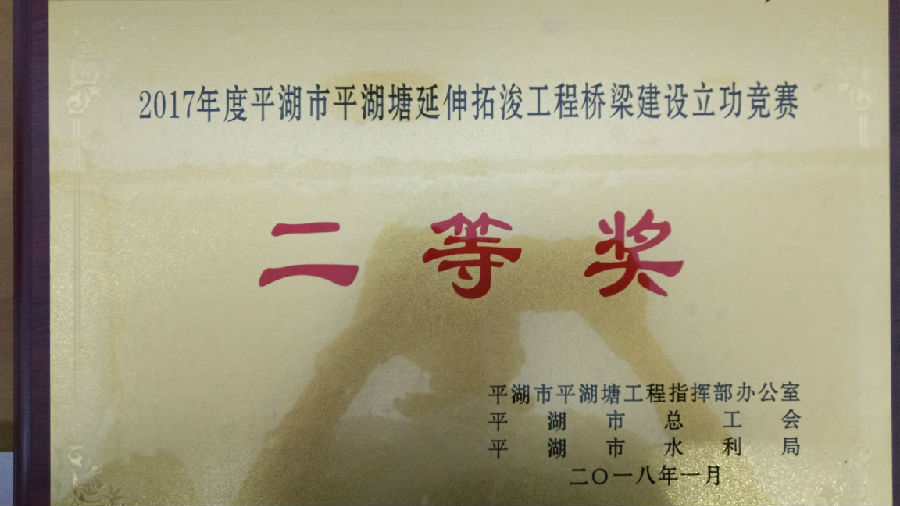 2017年度平湖市平湖塘延伸拓浚工程桥梁建设立功竞赛
二等奖
平湖市平湖塘工程指挥部办公室
平湖市总工会
平湖市水利局
二〇一八年一月